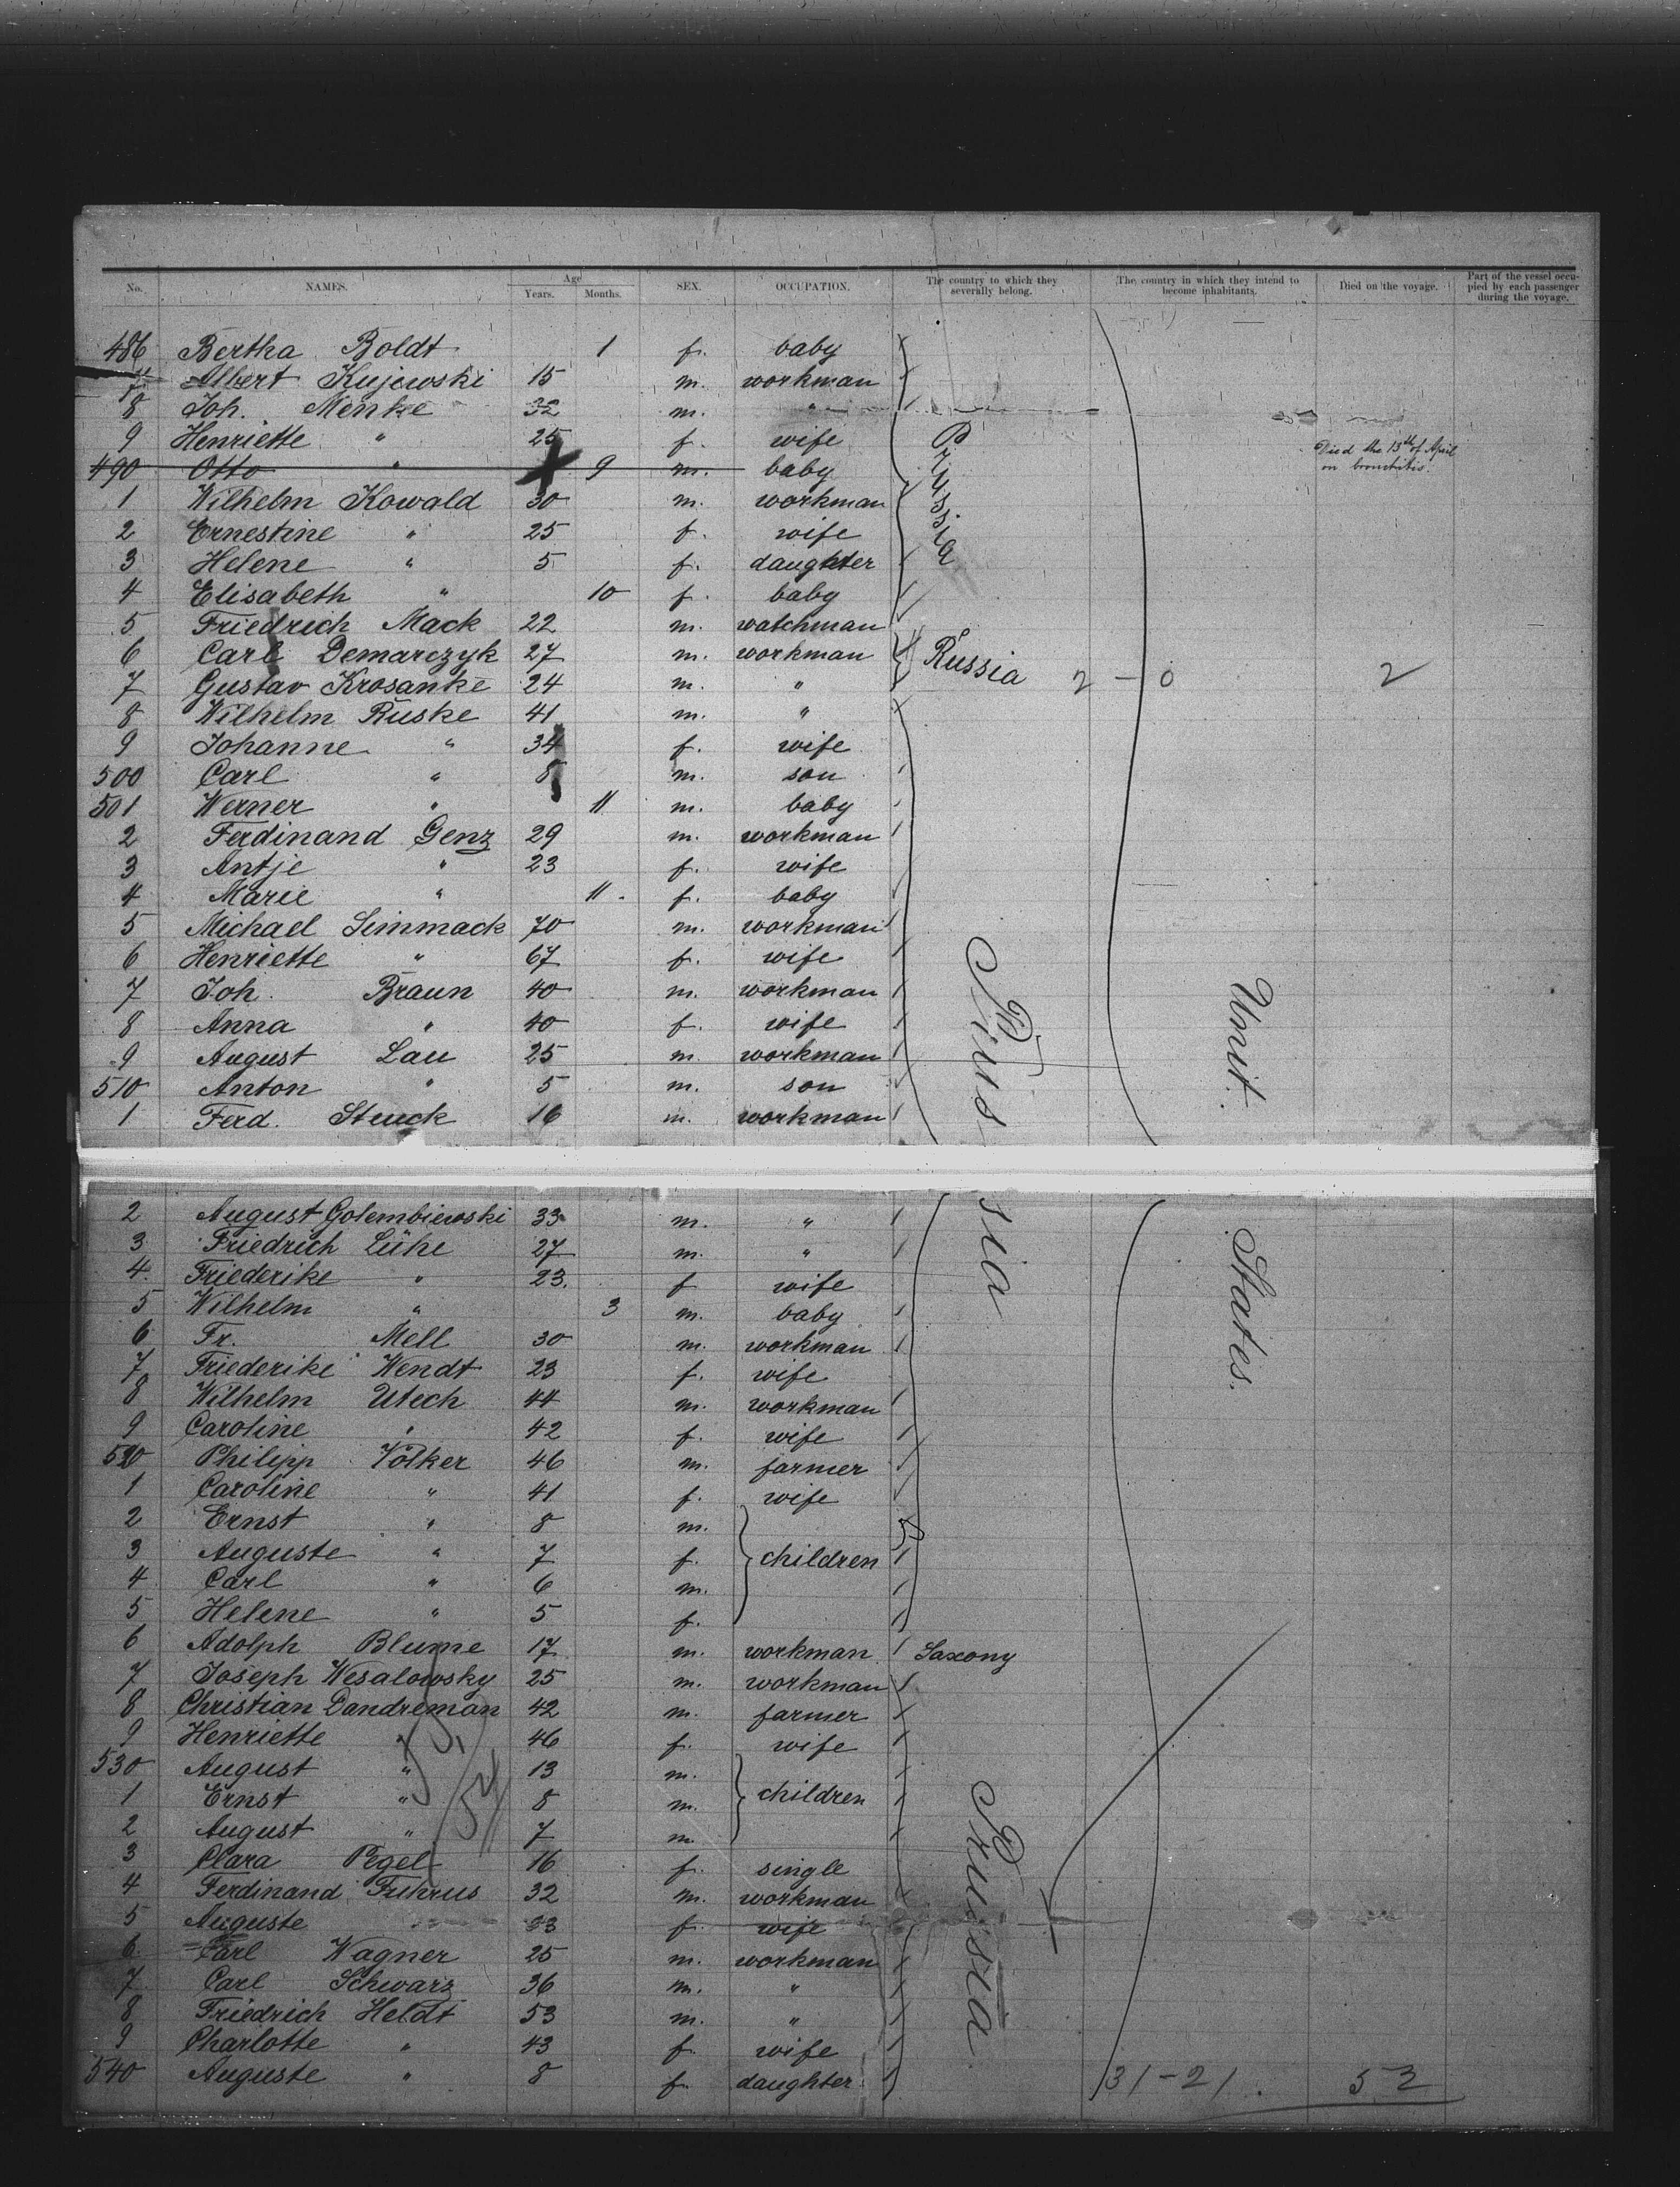 No. NAMES. Age Years. Months. SEX. OCCUPATION. The country to which they severally belong. The country in which they intend to become inhabitants. Died on the voyage. Part of the vessel occupied by each passenger during the voyage.
486 Bertha Boldt 1 f. baby
7 Albert Kujewski 15 m. workman
8 Joh. Menke 32 m. "
9 Henriette " 25 f. wife Prussia
490 Otto " 9 m. baby Died the 13th of April on bronchitis.
1 Wilhelm Kowald 30 m. workman
2 Ernestine " 25 f. wife
3 Helene " 5 f. daughter
4 Elisabeth " 10 f. baby
5 Friedrich Mack 22 m. watchman
6 Carl Demarczyk 27 m. workman Russia 2 - 0 2
7 Gustav Krosanke 24 m. "
8 Wilhelm Ruske 41 m. "
9 Johanne " 34 f. wife
500 Carl " 8 m. son
501 Werner " 11 m. baby
2 Ferdinand Genz 29 m. workman
3 Antje " 23 f. wife
4 Marie " 11. f. baby
5 Michael Simmack 70 m. workman
6 Henriette " 67 f. wife
7 Joh. Braun 40 m. workman
8 Anna " 40 f. wife
9 August Lau 25 m. workman
510 Anton " 5 m. son
1 Ferd. Stuck 16 m. workman
Prussia Unit. States.
2 August Golembiewski 33 m. "
3 Friedrich Lühe 27 m. "
4 Friederike " 23. f wife
5 Wilhelm " 3 m. baby
6 Fr. Mell 30 m. workman
7 Friederike Wendt 23 f. wife
8 Wilhelm Utech 44 m. workman
9 Caroline " 42 f. wife
520 Philipp Völker 46 m. farmer
1 Caroline " 41 f. wife
2 Ernst " 8 m.
3 Auguste " 7 f. children
4 Carl " 6 m.
5 Helene " 5 f.
6 Adolph Blume 17 m. workman Saxony
7 Joseph Wesalowsky 25 m. workman
8 Christian Dandreman 42 m. farmer
9 Henriette " 46 f. wife
530 August " 13 m.
1 Ernst " 8 m. children
2 August " 7 m.
3 Clara Pegel 16 f. single
4 Ferdinand Fuhrus 32 m. workman
5 Auguste 33 f. wife
6 Carl Wagner 25 m. workman
7 Carl Schwarz 36 m. "
8 Friedrich Heldt 53 m. "
9 Charlotte " 43 f. wife
540 Auguste " 8 f. daughter
Prussia.
31-21. 52